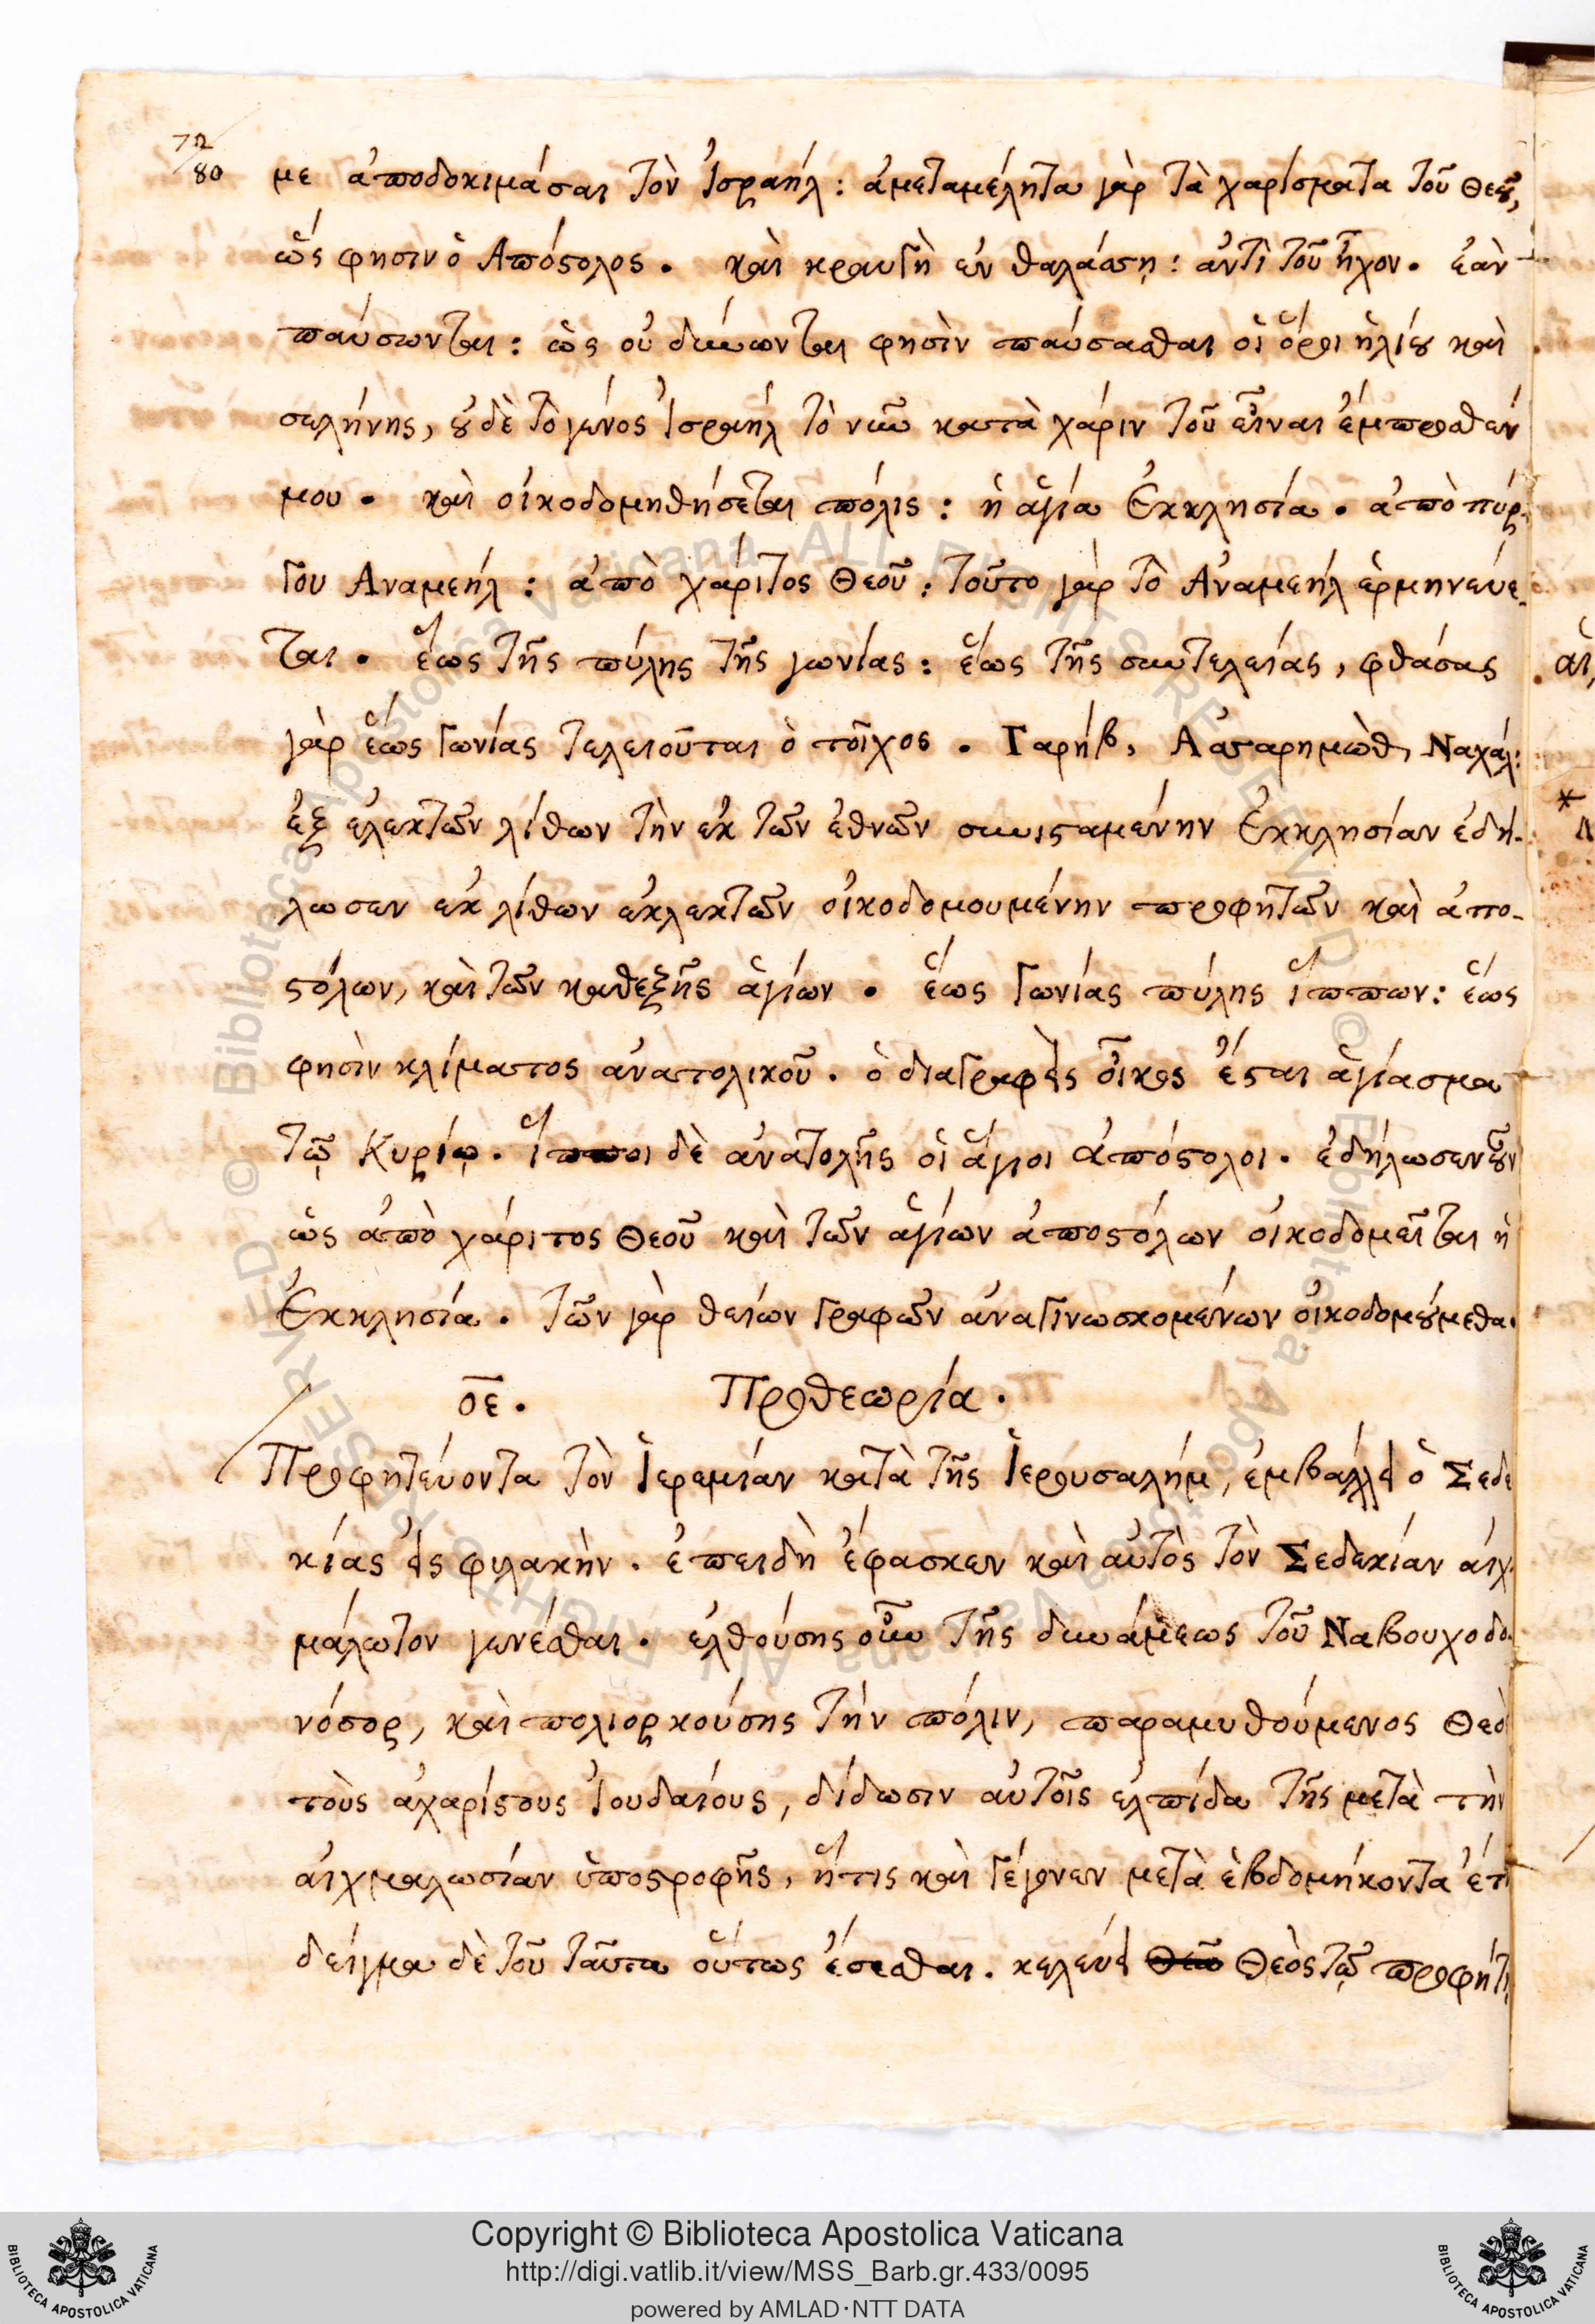 72
80
με ἀποδοκιμάσαι τὸν Ἰσραήλ: ἀμεταμέλητα γὰρ τὰ χαρίσματα τοῦ Θεοῦ,
ὥς φησιν ὁ Ἀπόστολος. καὶ κραυγὴ ἐν θαλάσσῃ: ἀντὶ τοῦ ἦχον. ἐὰν
παύσωνται: ὡς οὐ δύνωνται φησὶν παύσασθαι οἱ ὅροι ἡλίου καὶ
σελήνης, οὐδὲ τὸ γένος Ἰσραήλ τὸ νῦν κατὰ χάριν τοῦ εἶναι ἐμπροσθέν
μου. καὶ οἰκοδομηθήσεται πόλις: ἡ ἁγία Ἐκκλησία. ἀπὸ πύρ-
γου Αναμεήλ: ἀπὸ χάριτος Θεοῦ: τοῦτο γὰρ τὸ Ἀναμεήλ ἑρμηνεύε-
ται. ἕως τῆς πύλης τῆς γωνίας: ἕως τῆς συντελείας, φθάσας
γὰρ ἕως γωνίας τελειοῦται ὁ τοῖχος. Γαρήβ, Ἀσαρημὼθ, Ναχάλ:
ἐξ ἐλεκτῶν λίθων τὴν ἐκ τῶν ἐθνῶν συνισταμένην Ἐκκλησίαν ἐδή-
λωσεν ἐκ λίθων ἐκλεκτῶν οἰκοδομουμένην προφητῶν καὶ ἀπο-
στόλων, καὶ τῶν καθεξῆς ἁγίων. ἕως γωνίας πύλης ἵππων: ἕως
φησὶν κλίματος ἀνατολικοῦ. ὁ διαγραφεὶς οἶκος ἔσται ἁγίασμα
τῷ Κυρίῳ. ἵπποι δὲ ἀνατολῆς οἱ ἅγιοι ἀπόστολοι. ἐδήλωσεν οὖν
ὡς ἀπὸ χάριτος Θεοῦ καὶ τῶν ἁγίων ἀποστόλων οἰκοδομεῖται ἡ
Ἐκκλησία. τῶν γὰρ θείων γραφῶν ἀναγινωσκομένων οἰκοδομούμεθα.
οε. Προθεωρία.
Προφητεύοντα τὸν Ἱερεμίαν κατὰ τῆς Ἱερουσαλήμ, ἐμβάλλει ὁ Σεδε
κίας εἰς φυλακὴν. ἐπειδὴ ἔφασκεν καὶ αὐτὸς τὸν Σεδεκίαν αἰχ-
μάλωτον γενέσθαι. ἐλθούσης οὖν τῆς δυνάμεως τοῦ Ναβουχοδο-
νόσορ, καὶ πολιορκούσης τήν πόλιν, παραμυθούμενος Θεὸ
τοὺς ἀχαρίστους Ἰουδαίους, δίδωσιν αὐτοῖς ἐλπίδα τῆς μετὰ τὴν
αἰχμαλωσίαν ὑποστροφῆς, ἥτις καὶ γέγονεν μετὰ ἑβδομήκοντα ἔτ
δεῖγμα δὲ τοῦ ταῦτα οὕτως ἔσεσθαι. κελεύει Θεὸς τῷ προφήτ
Copyright © Biblioteca Apostolica Vaticana
http://digi.vatlib.it/view/MSS_Barb.gr.433/0095
powered by AMLAD·NTT DATA